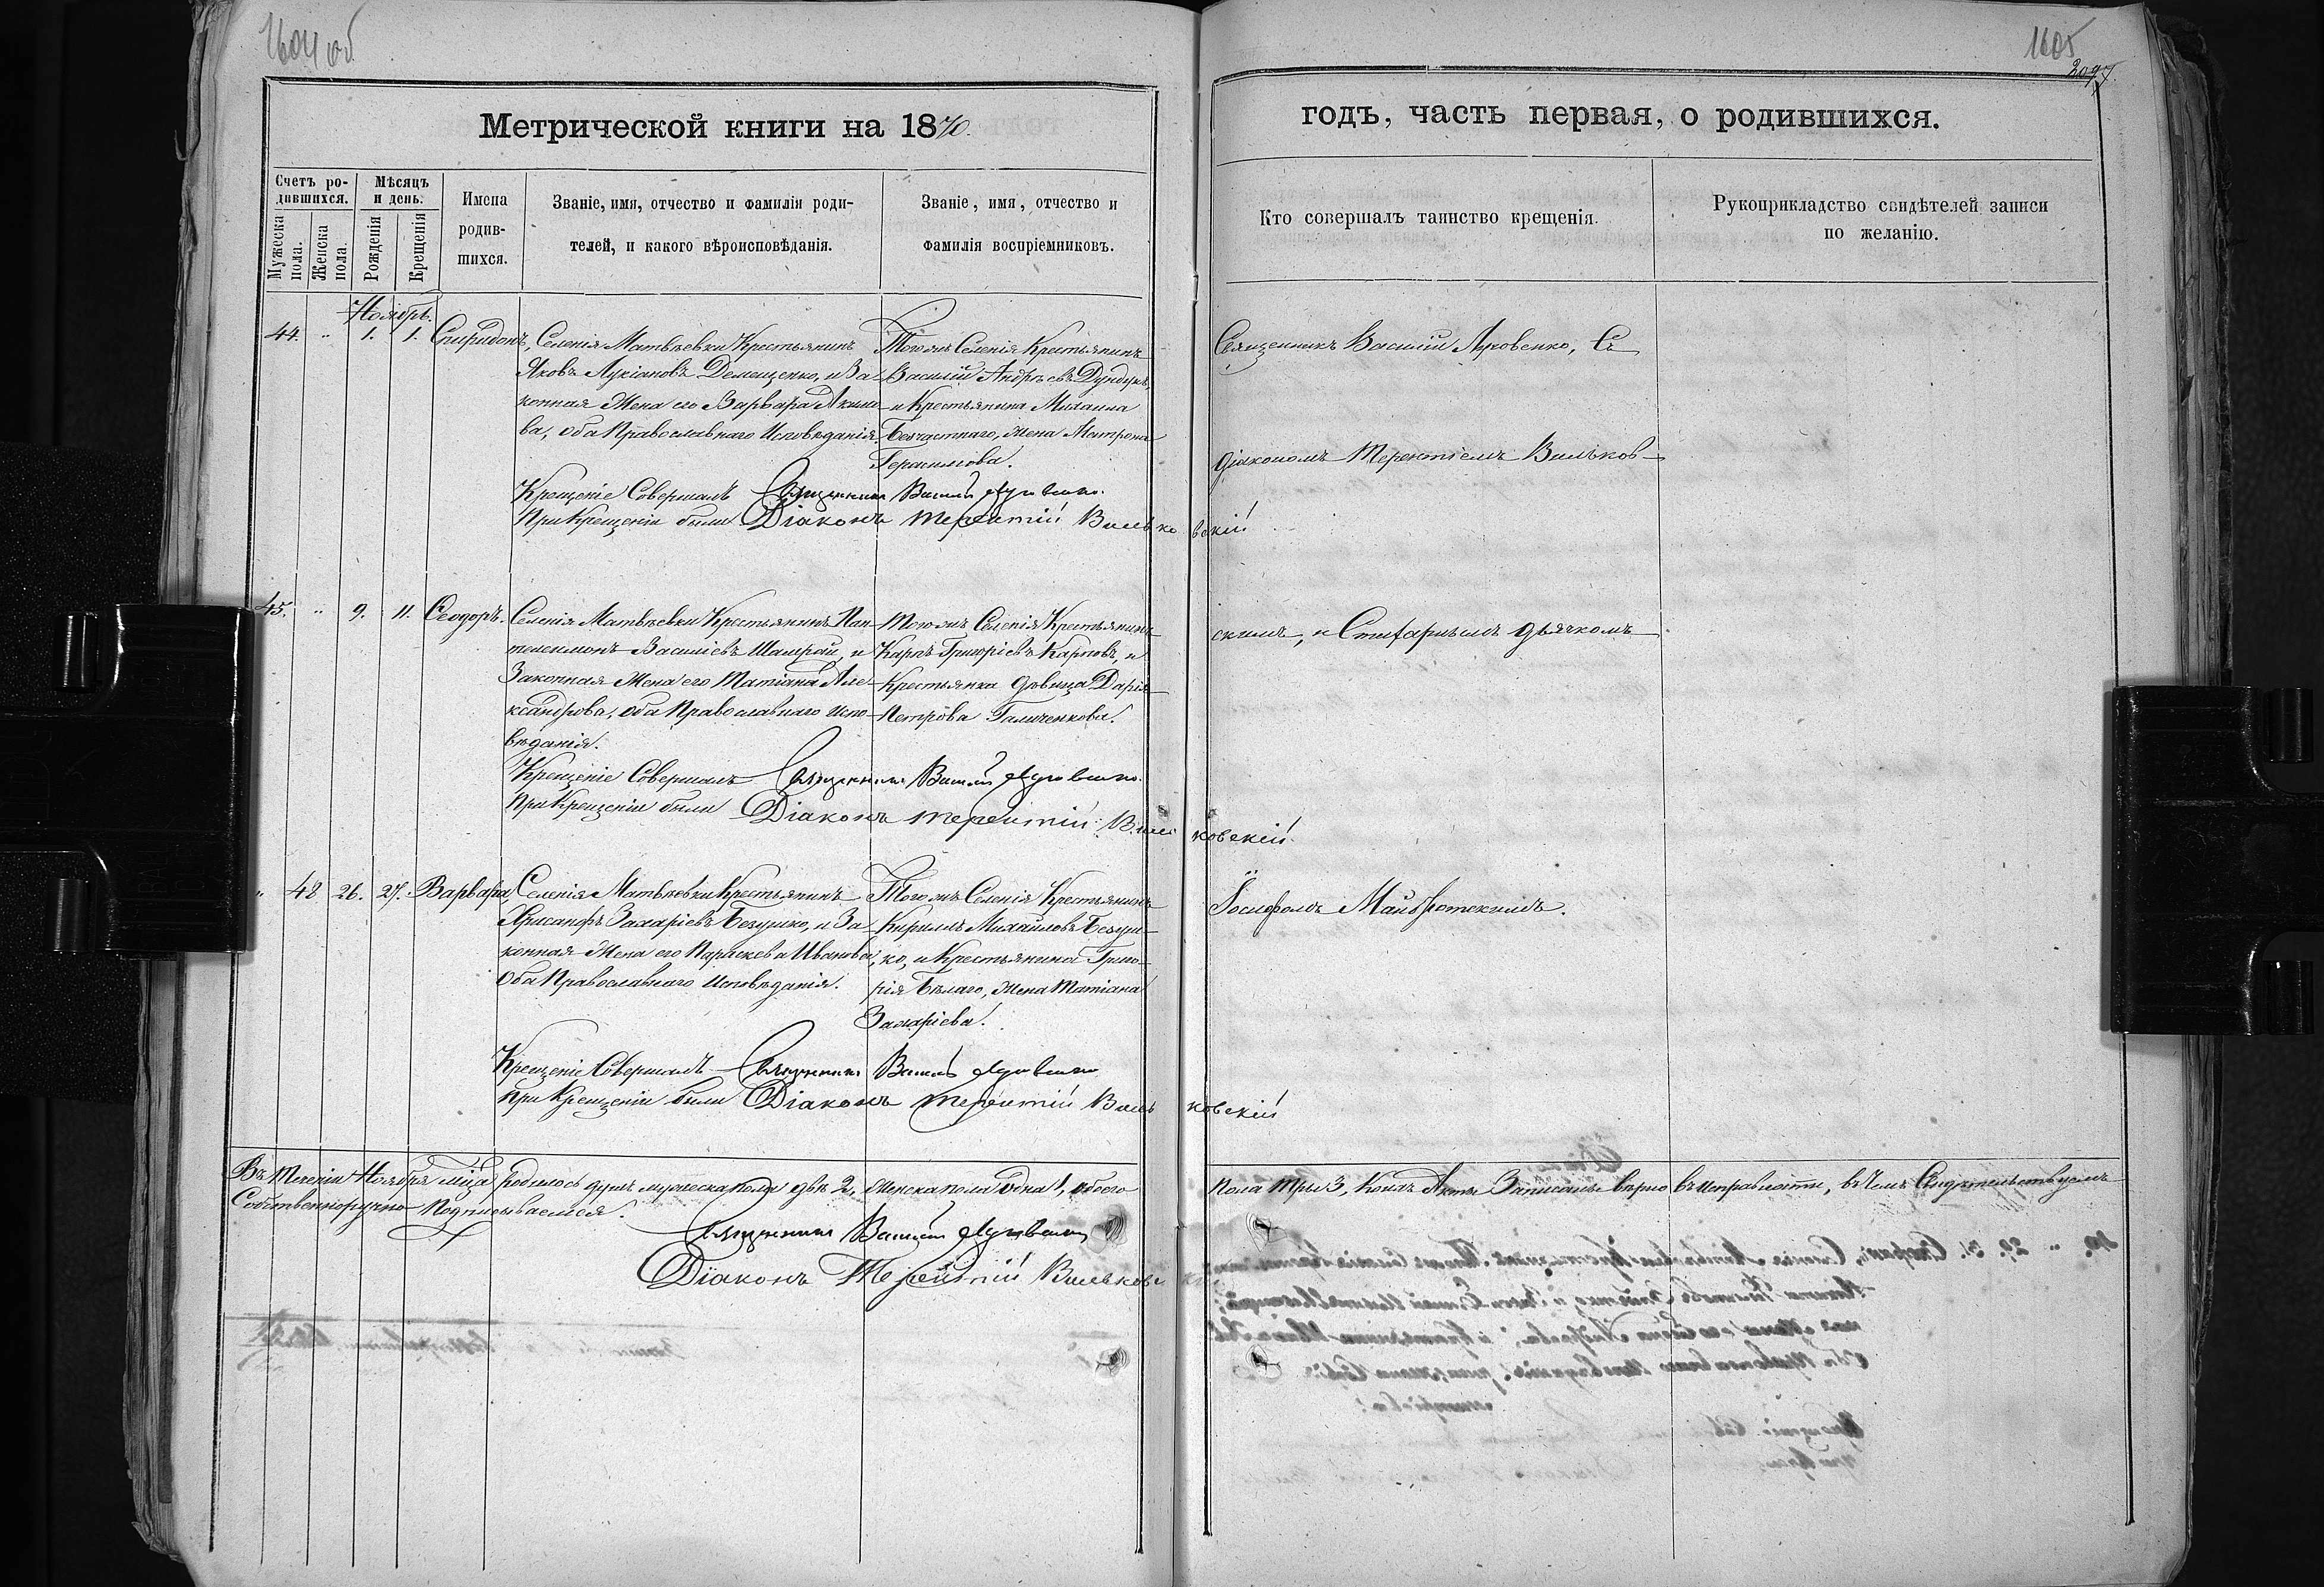 1604 об
1605
2097.
Метрической книги на 1870.
годъ, часть первая, о родившихся.
Счетъ ро-
дившихся.
Мужеска
пола.
Женска
пола.
Мѣсяцъ
и день.
Рожденія
Крещенія
Имена
родив-
шихся.
Званіе, имя, отчество и фамилія роди-
телей, и какого вѣроисповѣданія.
Званіе, имя, отчество и
фамилія воспріемниковъ.
Кто совершалъ таинство крещенія.
Рукоприкладство свидѣтелей записи
по желанію.
Ноябрь.
44. „ 1. 1. Спиридонъ,
Селенія Матвѣевки Крестьянинъ
Яковъ Лукіановъ Демещенко, и За-
конная Жена его Варвара Акимо-
ва, оба Православнаго Исповѣданія.
Тогожъ Селенія Крестьянинъ
Василій Андрѣевъ Дундукъ,
и Крестьянина Михаила
Безчастнаго, жена Матрона
Герасимова.
Крещеніе Совершалъ Священникъ Василій
При Крещеніи были Діаконъ Терентій Вильковскій
Священникъ Василій Съ
діакономъ Терентіемъ Вильков-
45. „ 9. 11. Ѳеодоръ.
Селенія Матвѣевки Крестьянинъ Пан-
телеимонъ Василіевъ Шамрай, и
Законная Жена его Татіана Але-
ксандрова, оба Православнаго Испо-
вѣданія.
Тогожъ Селенія Крестьянинъ
Карпъ Григоріевъ Карповъ, и
Крестьянка дѣвица Дарія
Петрова Галиченкова.
Крещеніе Совершалъ Священникъ Василій
При Крещеніи были Діаконъ Терентій Вильковскій
скимъ, и дьячкомъ
„ 48 26. 27. Варвара,
Селенія Матвѣевки Крестьянинъ
Хрисанфъ Захаріевъ Безушко, и За-
конная Жена его Параскева Иванова,
Оба Православнаго Исповѣданія.
Тогожъ Селенія Крестьянинъ
Кириллъ Михайловъ Безуш-
ко, и Крестьянина Григо-
рія Бѣлаго, Жена Татіана
Захаріева.
Крещеніе Совершалъ Священникъ Василій
При Крещеніи были Діаконъ Терентій Вильковскій
Іосифомъ
Въ теченіи Ноября мца родилось душъ мужеска пола двѣ 2, Женска пола Одна 1, обоего
пола три 3, Акты Записаны вѣрно въ исправности, въ чемъ Свидѣтельствуемъ
Собственноручно Подписываемся.
Священникъ Василій
Діаконъ Терентій Вильковскій